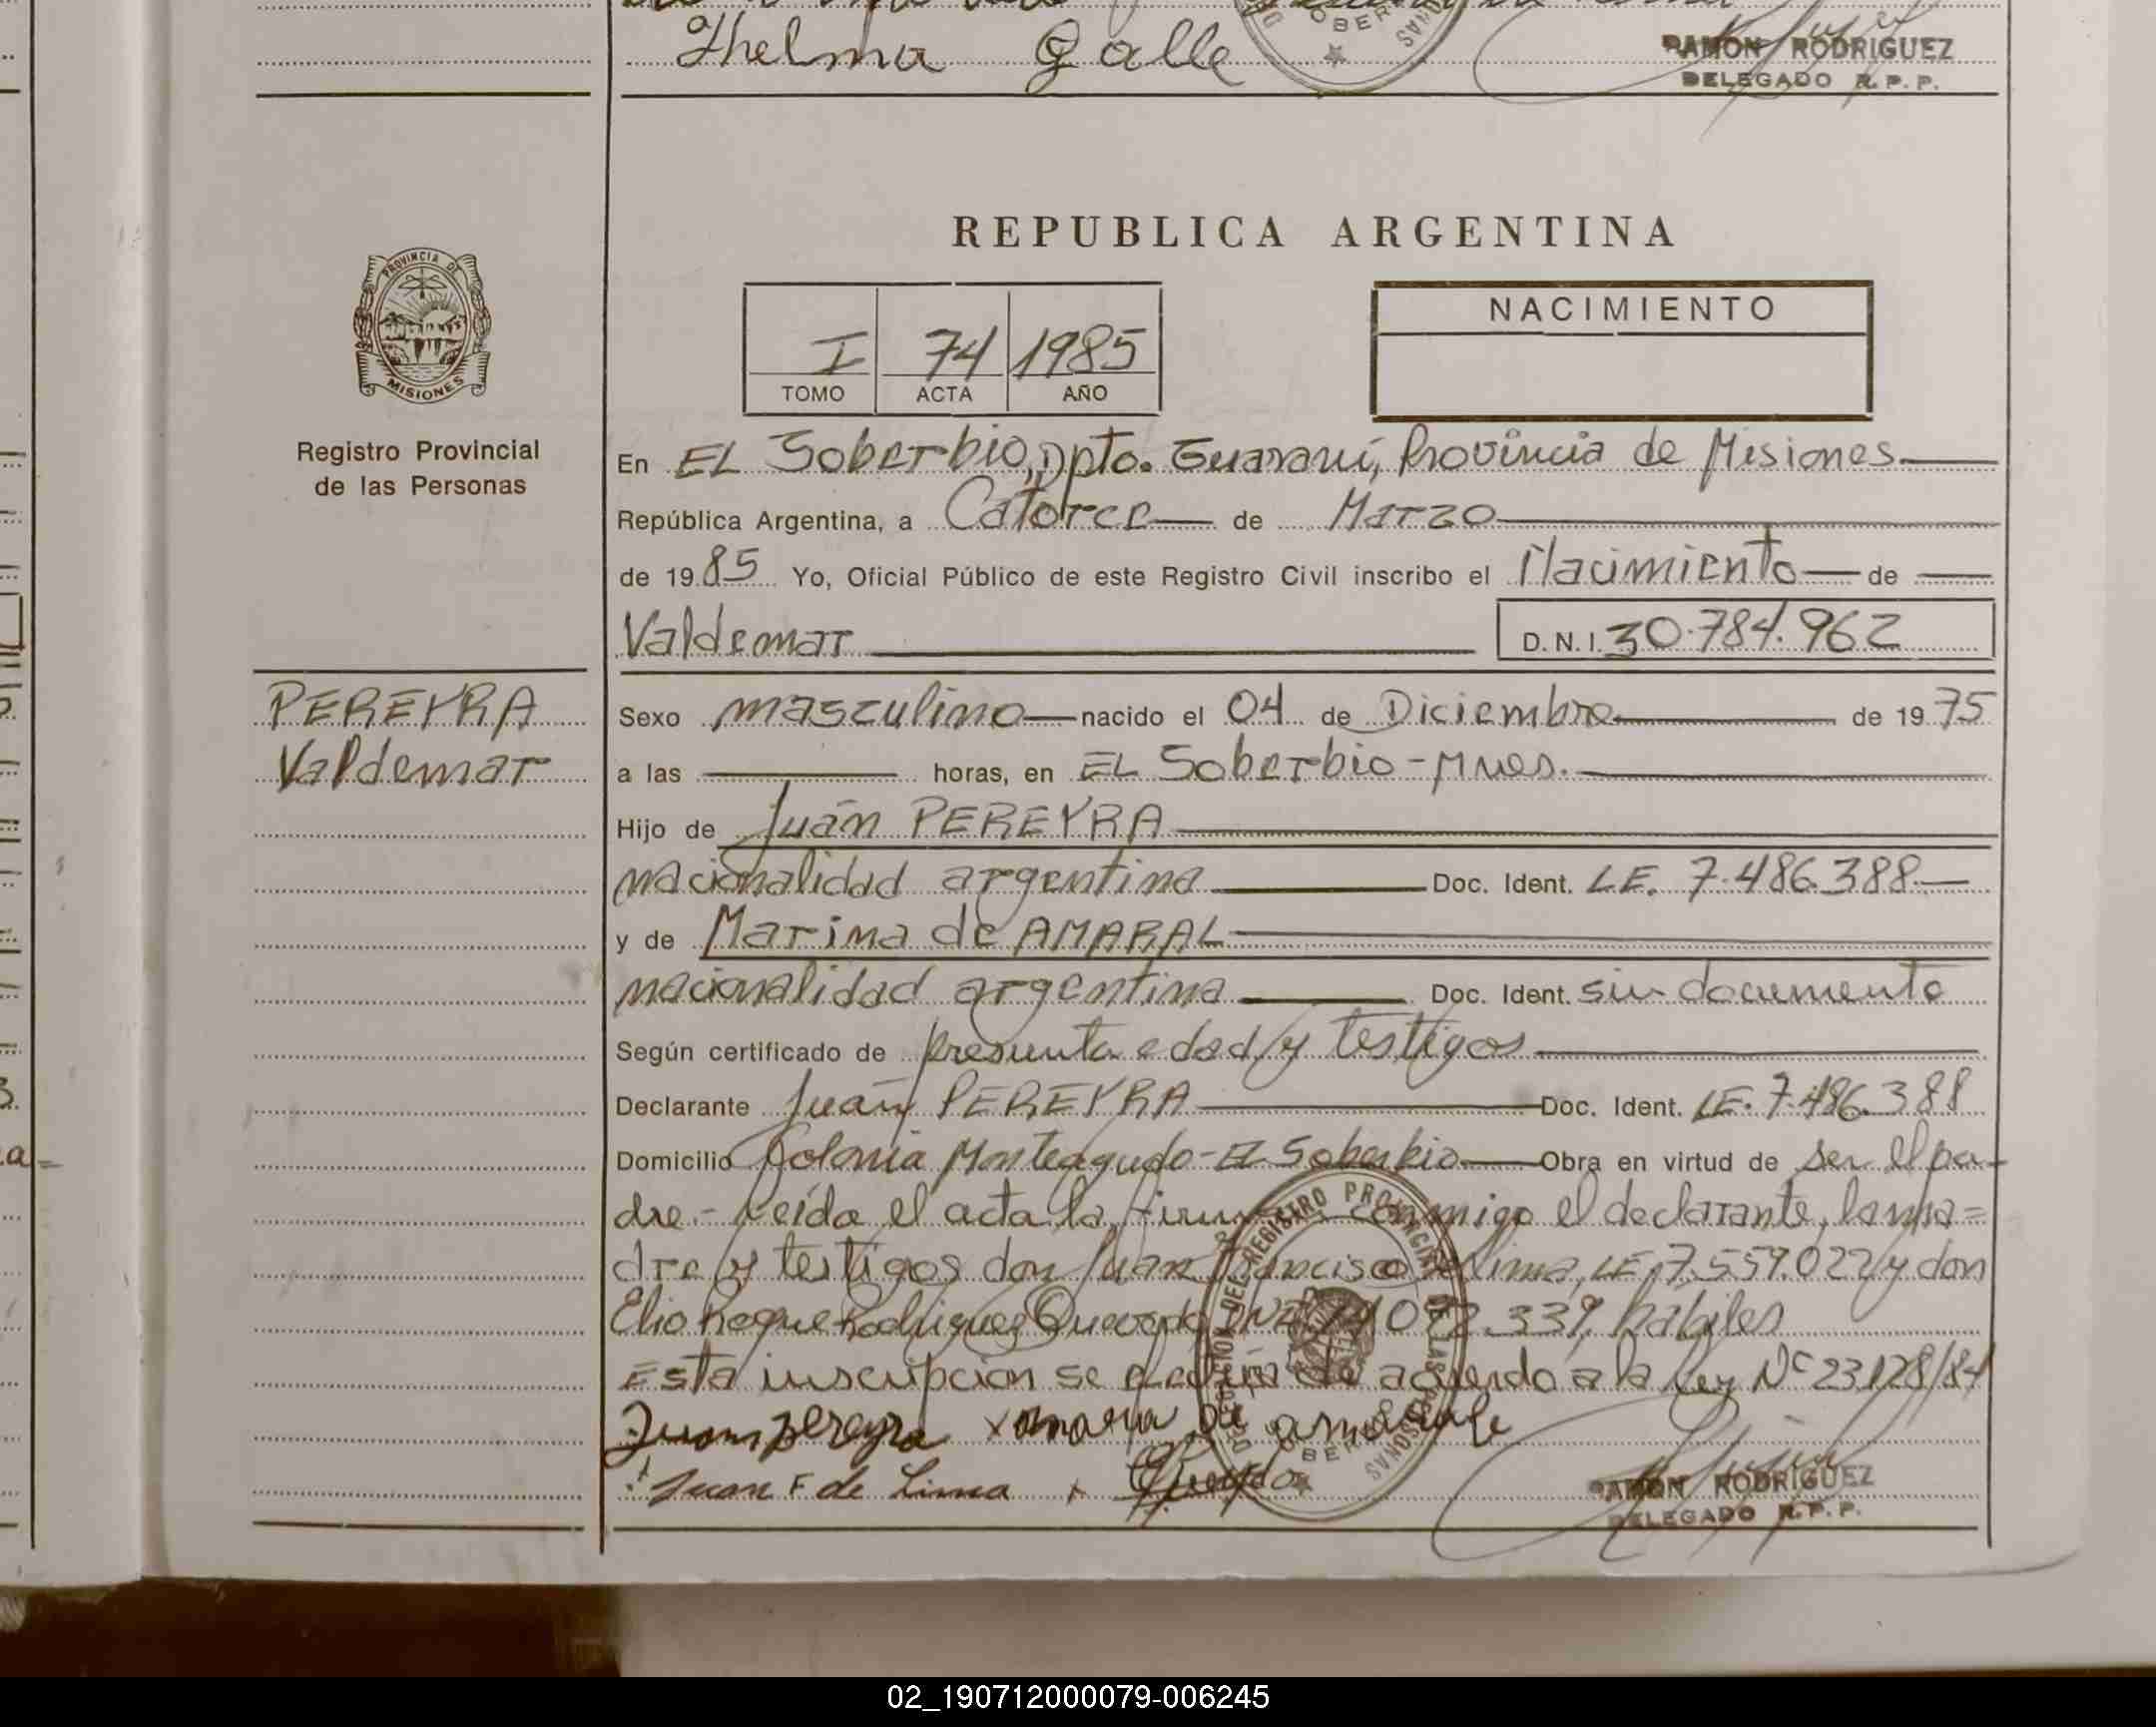 Thelma Galle
RAMON RODRIGUEZ
DELEGADO R. P. P.
REPUBLICA ARGENTINA
PROVINCIA DE
MISIONES
I 74 1985
TOMO ACTA AÑO
NACIMIENTO
Registro Provincial
de las Personas
En EL Soberbio, Dpto. Guaraní, Provincia de Misiones
República Argentina, a Catorce de Marzo
de 1985 Yo, Oficial Público de este Registro Civil inscribo el Nacimiento de
Valdemar D. N. I. 30.784.962
PEREYRA
Valdemar
Sexo masculino nacido el 04 de Diciembre de 1975
a las horas, en EL Soberbio - Mnes.
Hijo de Juán PEREYRA
nacionalidad argentina Doc. Ident. LE. 7.486.388
y de Marina de AMARAL
nacionalidad argentina Doc. Ident. sin documento
Según certificado de presunta edad y testigos
Declarante Juán PEREYRA Doc. Ident. LE. 7.486.388
Domicilio Colonia Monteagudo - El Soberbio Obra en virtud de ser el pa-
dre.- Leída el acta la firman conmigo el declarante, la ma=
dre y testigos don Juan Francisco de Lima, LE. 7.559.022 y don
Elio Roque Rodriguez Quevedo hábiles
Esta inscripción se efectúa de acuerdo a la Ley Nº 23128/84
Juan pereyra x
Juan F de Lima x Quevedo
RAMON RODRIGUEZ
DELEGADO R. P. P.
02_190712000079-006245